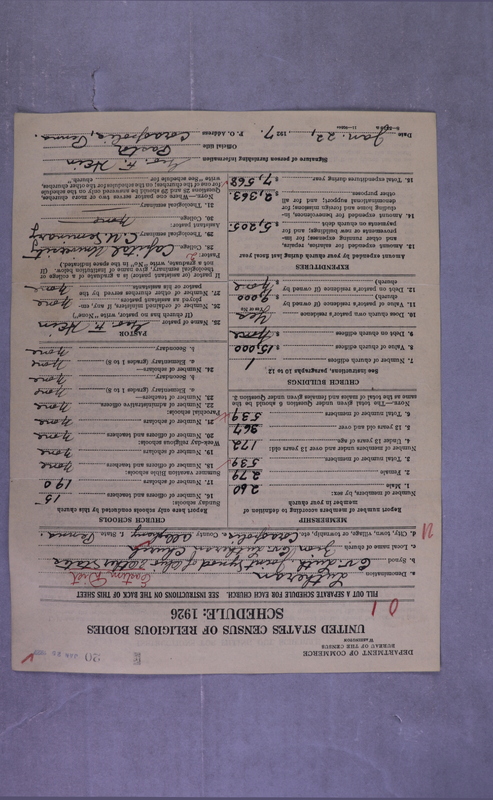 DEPARTMENT OF COMMERCE
BUREAU OF THE CENSUS
WASHINGTON
20
UNITED STATES CENSUS OF RELIGIOUS BODIES
SCHEDULE: 1926
FILL OUT A SEPARATE SCHEDULE FOR EACH CHURCH. SEE INSTRUCTIONS ON THE BACK OF THIS SHEET
a. Denomination Lutheran
b. Synod Ev. Luth. Joint Synod of Ohio & other States
c. Local name of church Zion Ev. Lutheran Church
d. City, town, village, or township, etc. Coraopolis e. County Allegheny f. State Penna.
MEMBERSHIP
Report number of members according to definition of member in your church
Number of members, by sex:
1. Male 260
2. Female 279
3. Total number of members 539
4. Under 13 years of age 172
5. 13 years and over 367
6. Total number of members 539
NOTE.—The total given under Question 6 should be the same as the total of males and females given under Question 2.
CHURCH BUILDINGS
See Instructions, paragraphs 10 to 12
7. Number of church edifices 1
8. Value of church edifices $ 15,000
9. Debt on church edifices $ None
10. Does church own pastor's residence Yes
11. Value of pastor's residence (if owned by church) $ 9,000
12. Debt on pastor's residence (if owned by church) $ None
EXPENDITURES
Amount expended by your church during last fiscal year
13. Amount expended for salaries, repairs, and other running expenses; for improvements or new buildings; and for payments on church debt $ 5,205
14. Amount expended for benevolences, including home and foreign missions; for denominational support; and for all other purposes $ 2,363
15. Total expenditures during year $ 7,568
CHURCH SCHOOLS
Report here only schools conducted by this church
Sunday schools:
16. Number of officers and teachers 15
17. Number of scholars 190
Summer vacation Bible schools:
18. Number of officers and teachers None
19. Number of scholars None
Week-day religious schools:
20. Number of officers and teachers None
21. Number of scholars None
Parochial schools:
22. Number of administrative officers None
23. Number of teachers—
a. Elementary (grades 1 to 8) None
b. Secondary None
24. Number of scholars—
a. Elementary (grades 1 to 8) None
b. Secondary None
PASTOR
25. Name of pastor Geo. F. Hein
(If church has no pastor, write "None")
26. Number of ordained ministers, if any, employed as assistant pastors None
27. Number of other churches served by the pastor or his assistants None
If pastor (or assistant pastor) is a graduate of college or theological seminary, give name of institution below. (If not a graduate, write "No" in the space indicated.)
Pastor:
28. College Capital University
29. Theological seminary C. U. Seminary
Assistant pastor:
30. College None
31. Theological seminary
NOTE.—Where one pastor serves two or more churches, Questions 28 and 29 should be answered only on the schedule for one of the churches; on the schedules for the other churches, write "See schedule for church."
Signature of person furnishing information Geo. F. Hein
Official title Pastor
Date Jan. 22, 1927. P. O. Address Coraopolis, Penna.